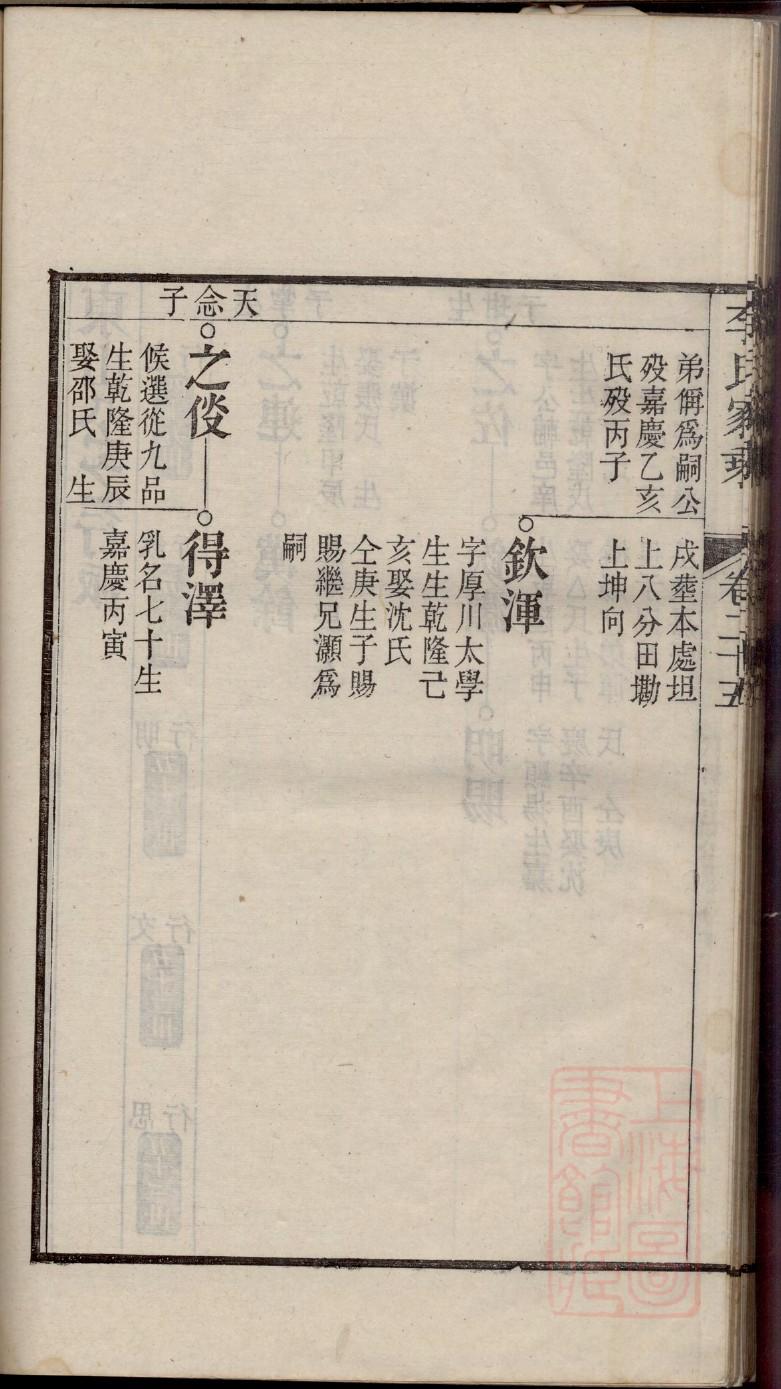 李氏家乘
卷二十五
弟偁爲嗣公
歿嘉慶乙亥
氏歿丙子
戌塟本處坦
上八分田墈
上坤向
欽渾
字厚川太學
生生乾隆己
亥娶沈氏
仝庚生子賜
賜繼兄灝爲
嗣
天念子
之俊
候選從九品
生乾隆庚辰
娶邵氏 生
得澤
乳名七十生
嘉慶丙寅
上海圖
書館藏